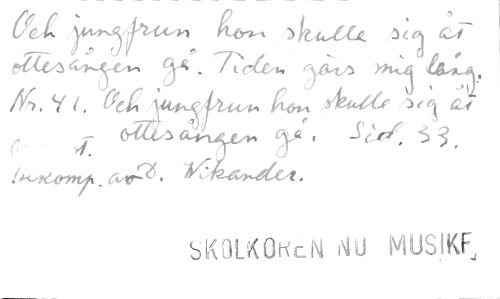 Och jungfrun hon skulle sig åt
ottesången gå. Tiden görs mig lång.
Nr. 41. Och jungfrun hon skulle sig åt
ottesången gå. Sid. 33.
Inkomp. av D. Nikander.
SKOLKÖREN NU MUSIKF.